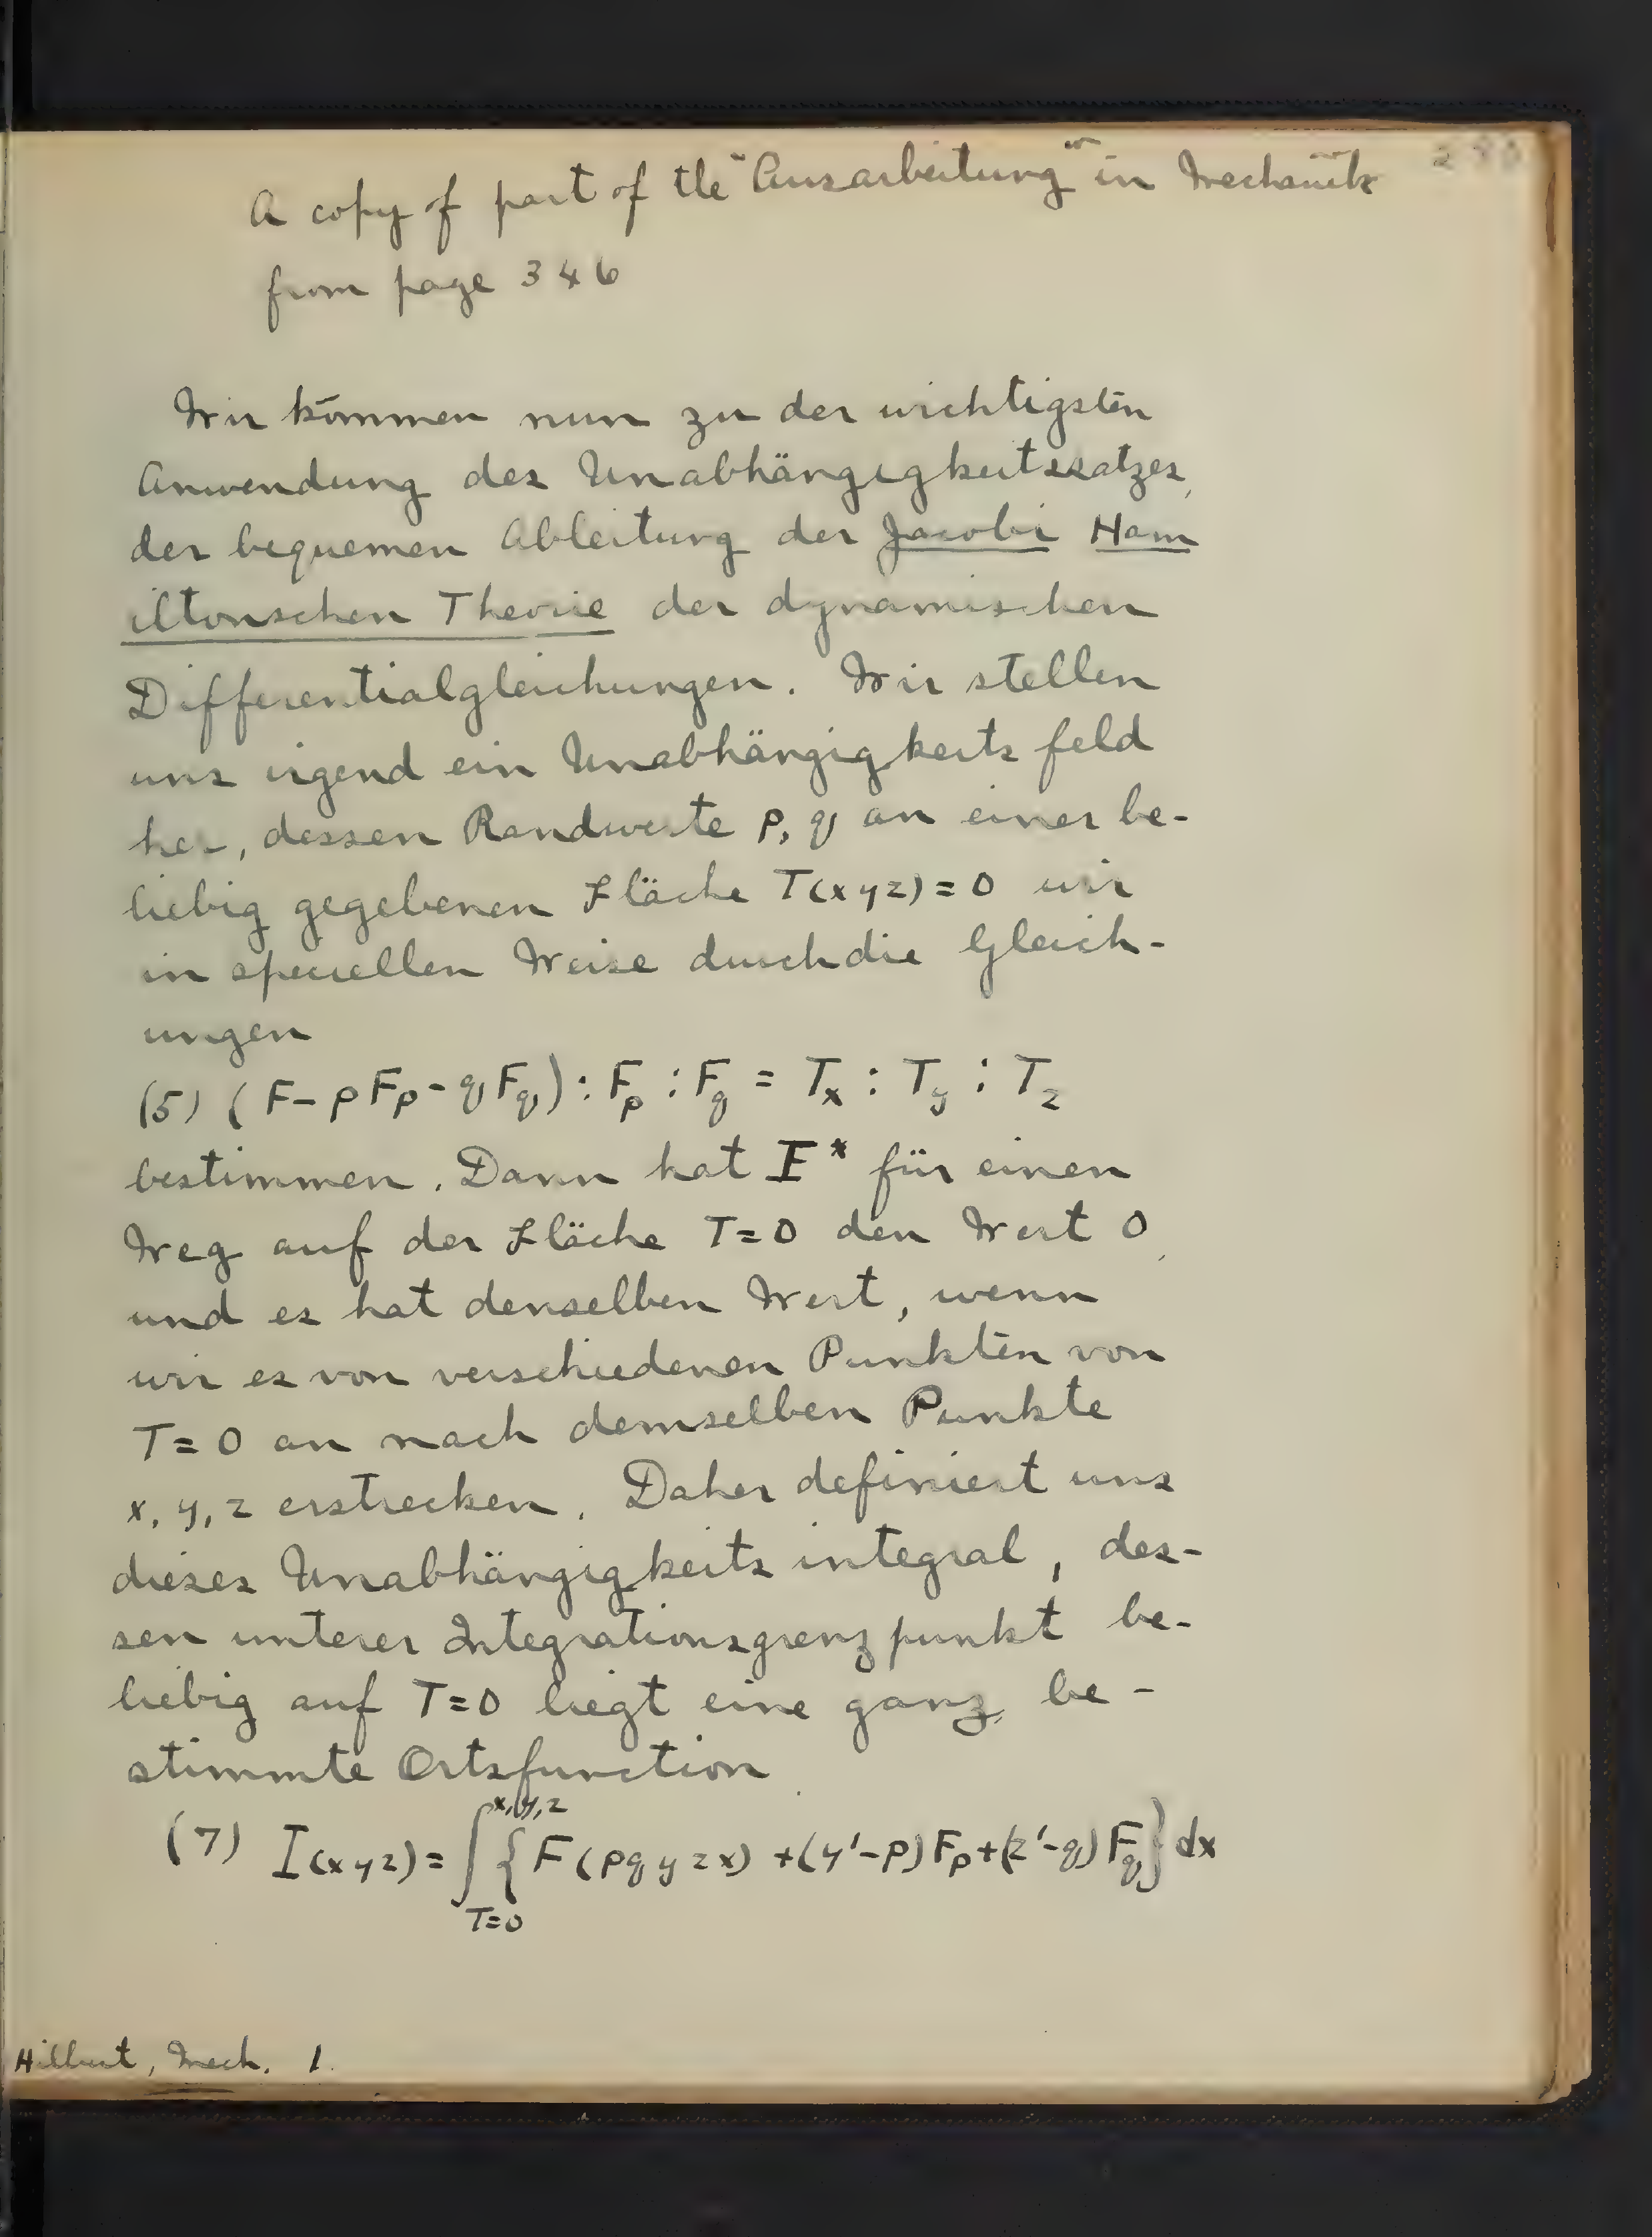 A copy of part of the "Ausarbeitung" in Mechanik
from page 346
Wir kommen nun zu der wichtigsten
Anwendung des Unabhängigkeitssatzes,
der bequemen Ableitung der Jacobi Ham
iltonschen Theorie der dynamischen
Differentialgleichungen. Wir stellen
uns irgend ein Unabhängigkeits feld
her, dessen Randwerte p, q an einer be-
liebig gegebenen Fläche T(xyz)=0 wir
in speciellen Weise durch die Gleich-
ungen
(5) (F-pFp-qFq):Fp:Fq = Tx:Ty:Tz
bestimmen. Dann hat I* für einen
Weg auf der Fläche T=0 den Wert 0,
und es hat denselben Wert, wenn
wir es von verschiedenen Punkten von
T=0 an nach demselben Punkte
x, y, z erstrecken. Daher definiert uns
dieses Unabhängigkeits integral, des-
sen unterer Integrationsgrenzpunkt be-
liebig auf T=0 liegt eine ganz be-
stimmte Ortsfunction
(7) I(xyz)=∫_{T=0}^{x,y,z}{F(pqyzx)+(y'-p)Fp+(z'-q)Fq}dx
Hilbert, Mech. 1.